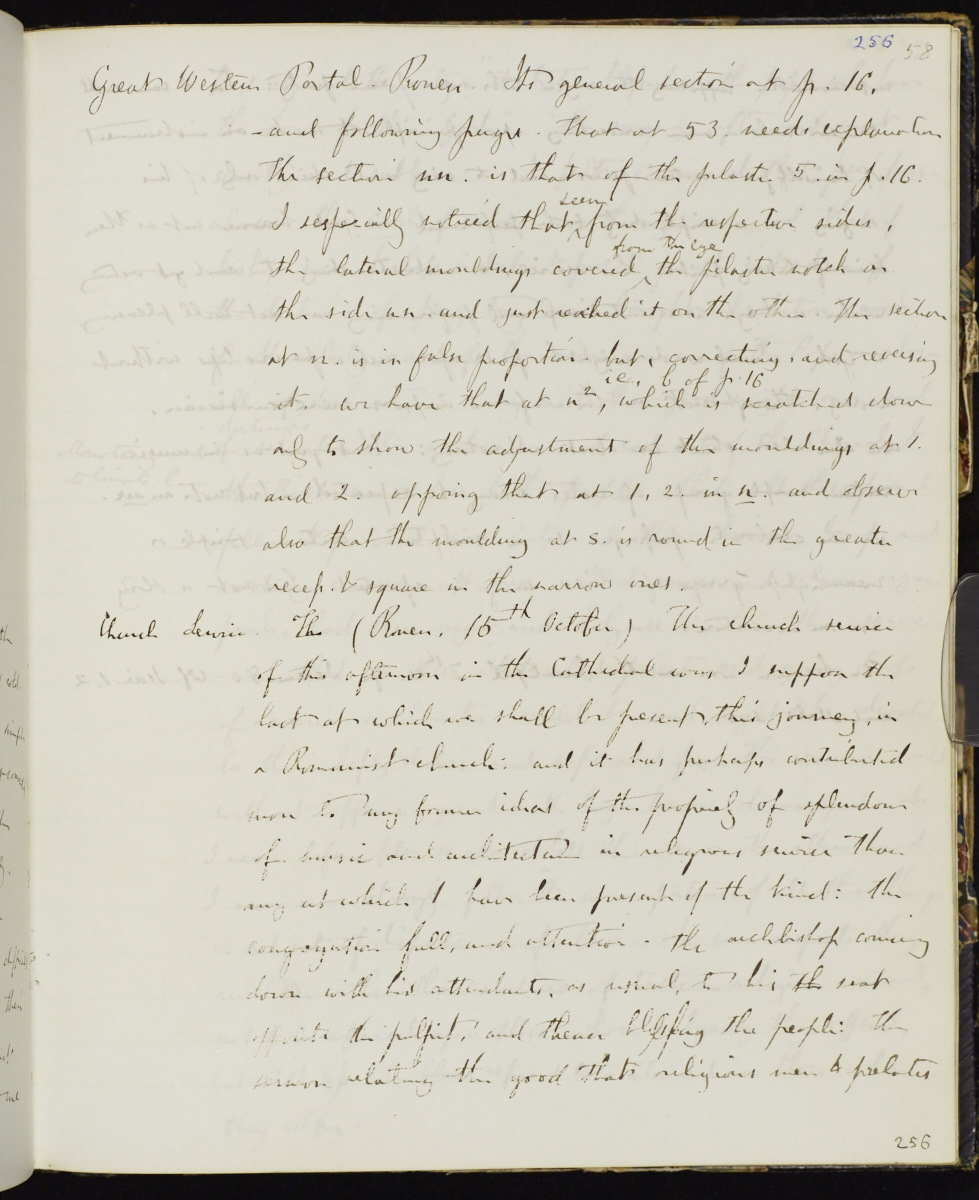 256 58
Great Western Portal. Rouen. Its general section at p. 16,
- and following pages. That at 53. needs explanation
The section nn. is that of the pilaster 5. in p. 16.
I especially noticed that seen from the respective sides,
the lateral mouldings covered from the eye the pilaster notch on
the side nn. and just reached it on the other. The section
at n. is in false proportion. but, correcting, and reversing
it. we have that at n², i.e. b of p. 16 which is scratched down
only to show the adjustment of the mouldings at 1.
and 2. opposing that at 1, 2. in n. and observe
also that the moulding at s. is round in the greater
recep. & square in the narrow ones.
Church Service. The (Rouen. 15th October) The church service
of this afternoon in the Cathedral was I suppose the
last at which we shall be present, this journey, in
a Romanist church: and it has perhaps contributed
more to my former ideas of the propriety of splendour
of music and architecture in religious service than
any at which I have been present of the kind: the
congregation full, and attentive - the archbishop coming
down with his attendants, as usual, to his the seat
opposite the pulpit, and thence blessing the people: the
sermon relating the good that religious men & prelates
256